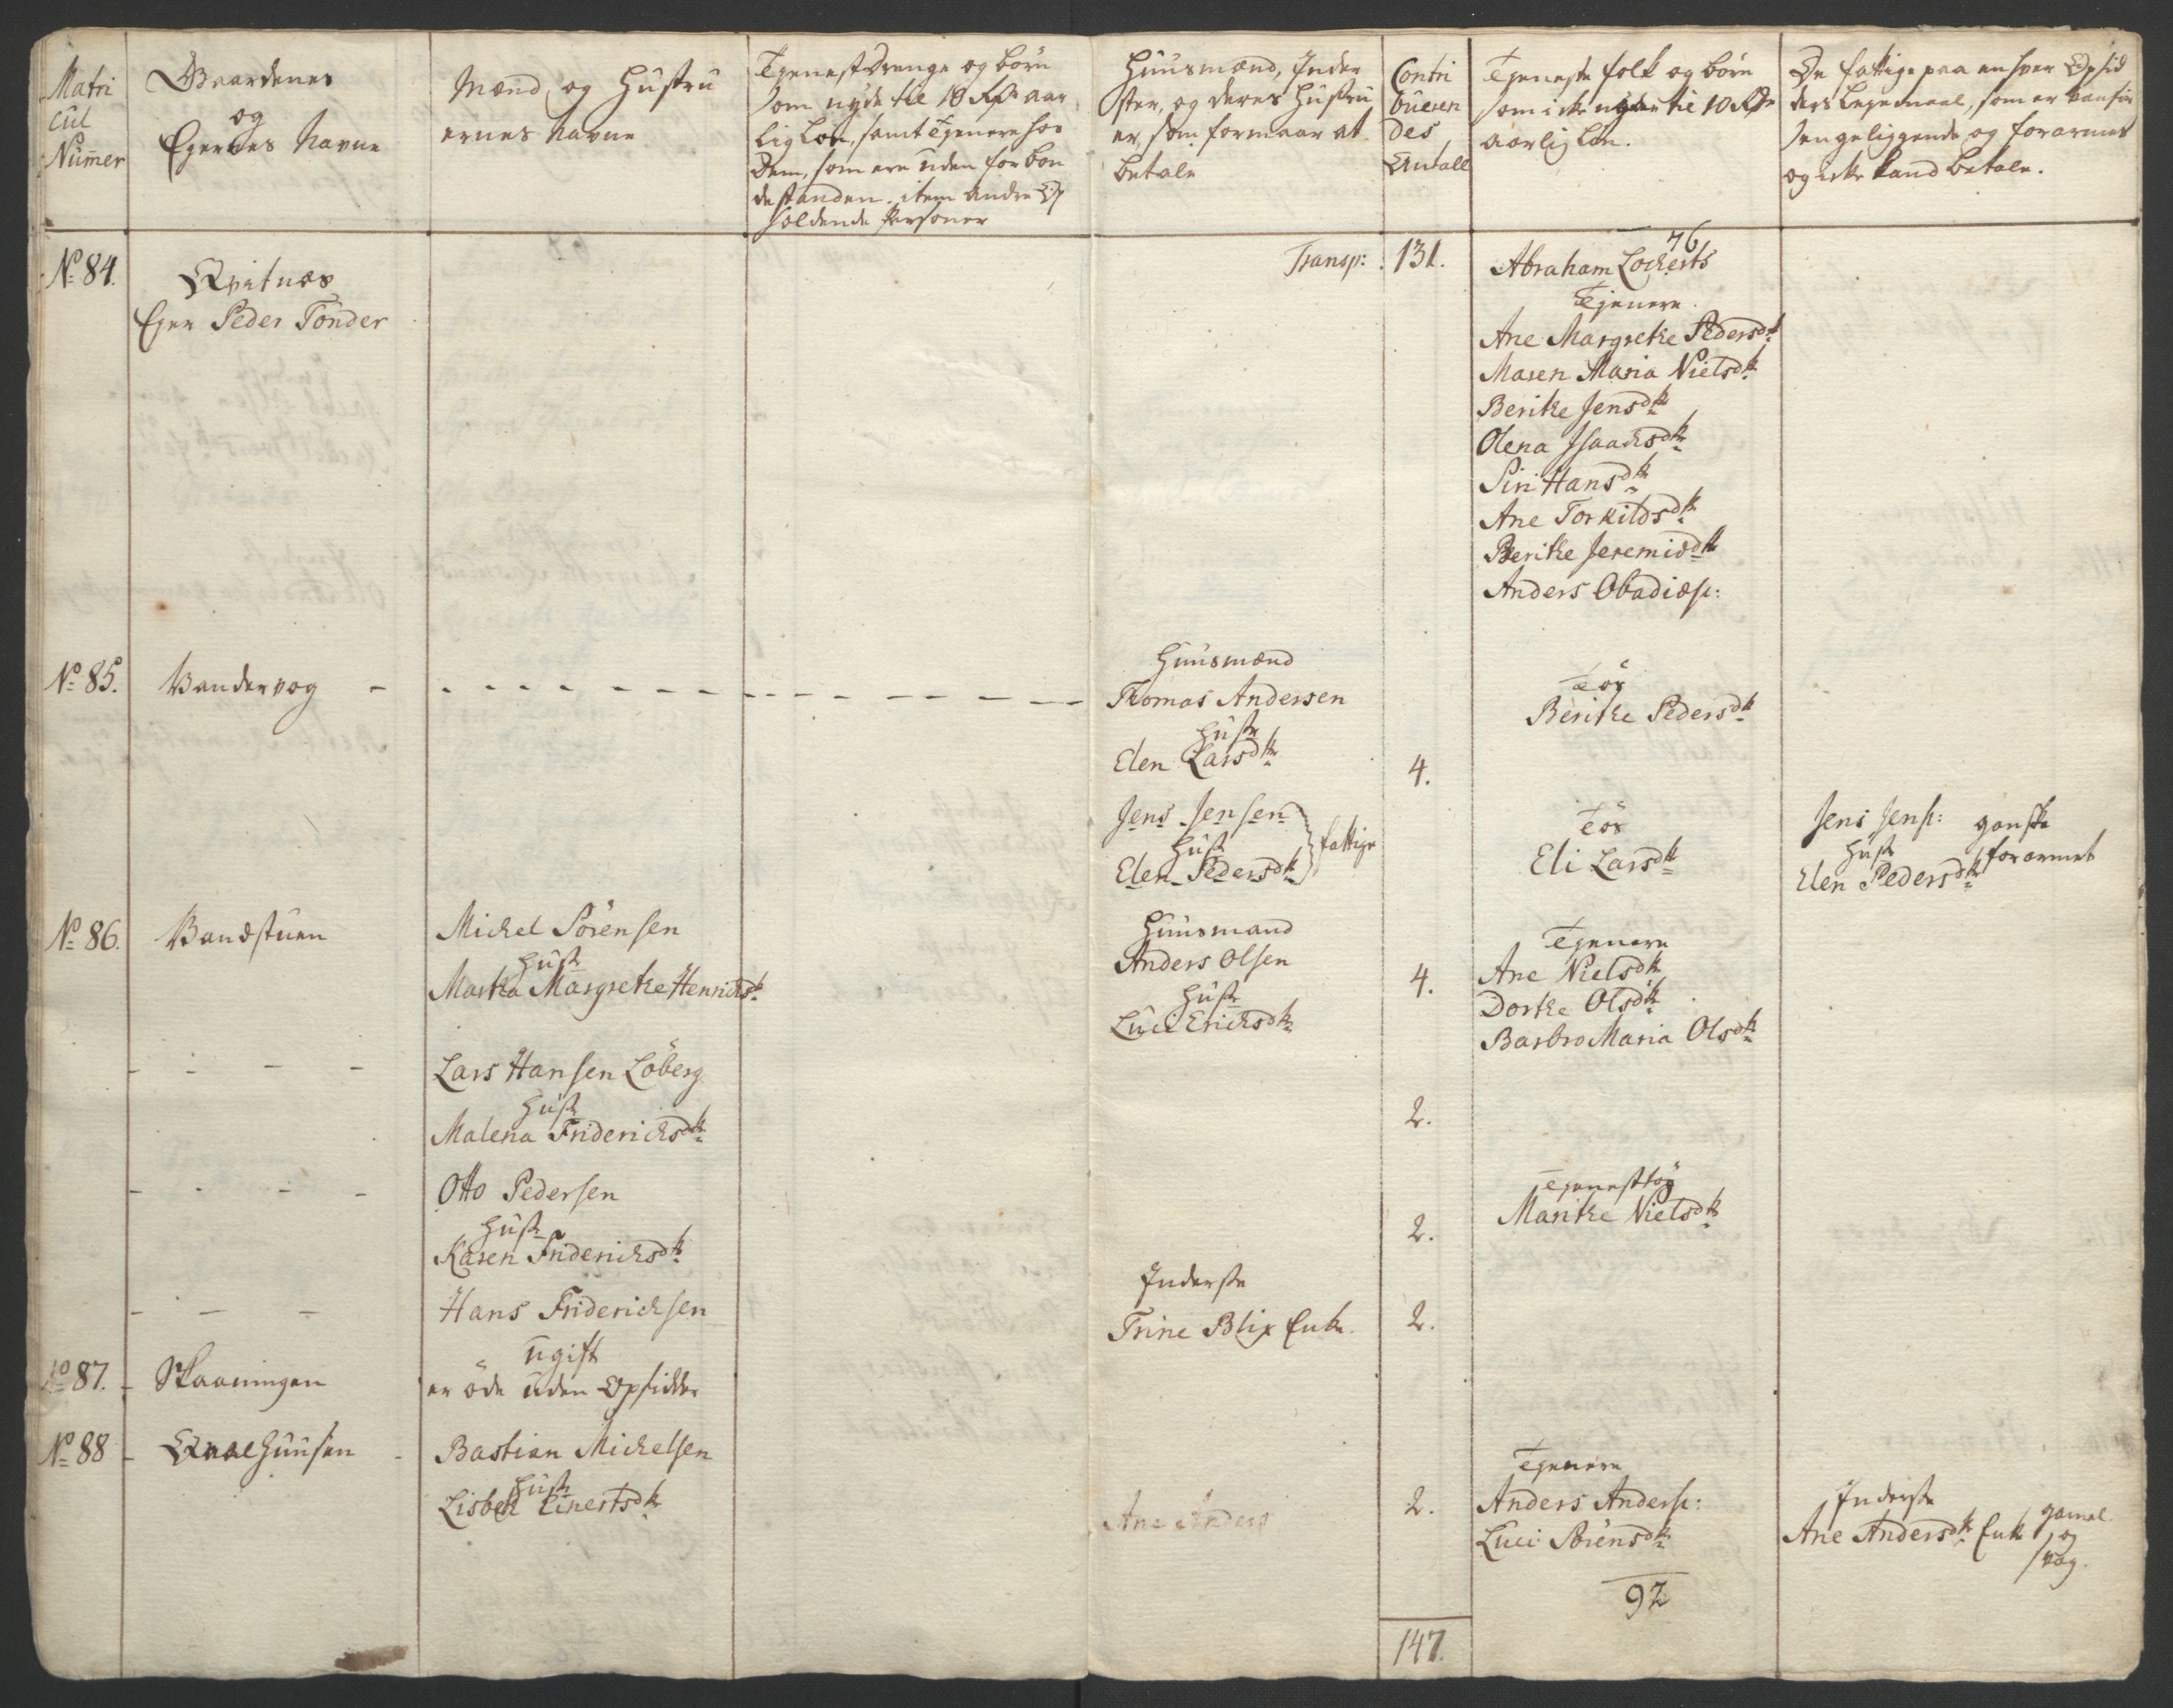 Matri
cul
Numer
Gaardenes
og
Eyernes Navne
Mænd og Hustru
ernes Navne
Tjenestdrenge og børn
som nyde til 10 Rdr aar
lig Løn, samt Tjenere hos
Dem, som ere uden for bon
destanden. item andre
holdende Personer
Huusmænd, Inder
ster, og deres Hustru
er, som formaar at
betale
Contri
bueren
des
Antall
Tjeneste folk og børn
som icke nyder til 10 Rdr
aarlig Løn.
De fattige paa enhver Opsid
ders Leyemaal, som er vanfør
sengeliggende og forarmet
og icke kand betale.
No 84.
Qvitnæs
Eyer Peder Tönder
Transp: 131.
76
Abraham Lockerts
Tjenere
Ane Margrethe Pedersdtr
Maren Maria Nielsdtr
Berithe Jensdtr
Olena Isaachsdtr
Siri Hansdtr
Ane Torkildsdtr
Berithe Jeremisdtr
Anders Obadiæs:
No 85. Vandervog
Huusmænd
Thomas Andersen
Hustr
Elen Larsdtr
4.
Tös
Berithe Pedersdtr
Jens Jensen
Hustr
Elen Pedersdtr
fattige
Tös
Eli Larsdtr
Jens Jens:
Hustr
Elen Pedersdtr
ganske
forarmet
No 86. Vandstuen
Michel Sörensen
Hustr
Martha Margrethe Henrichsdtr
Huusmand
Anders Olsen
Hustr
Luci Erichsdtr
4.
Tjenere
Ane Nielsdtr
Dorthe Olsdtr
Barbro Maria Olsdtr
Lars Hansen Löberg
Hustr
Malena Friderichsdtr
2.
Otto Pedersen
Hustr
Karen Friderichsdtr
2.
Tjenesttös
Marithe Nielsdtr
Hans Friderichsen
ugift
Inderste
Trine Blix Enke.
2.
No 87. Skaaningen
er öde uden Opsidder
No 88 Qvalhuusen
Bastian Michelsen
Hustr
Lisbeth Einertsdtr
Ane Anders
2.
Tjenere
Anders Anders:
Luci Sörensdtr
Inderste
Ane Andersdtr Enke
gamel
og
svag.
92
147.